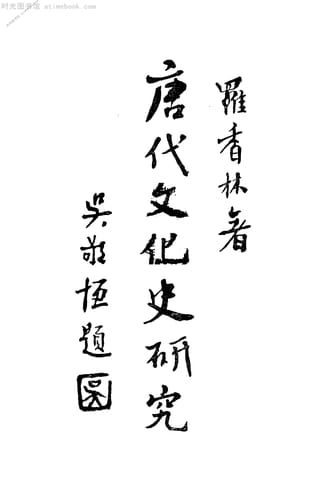 时光图书馆 atimebook.com
羅香林著
唐代文化史研究
吳敬恆題